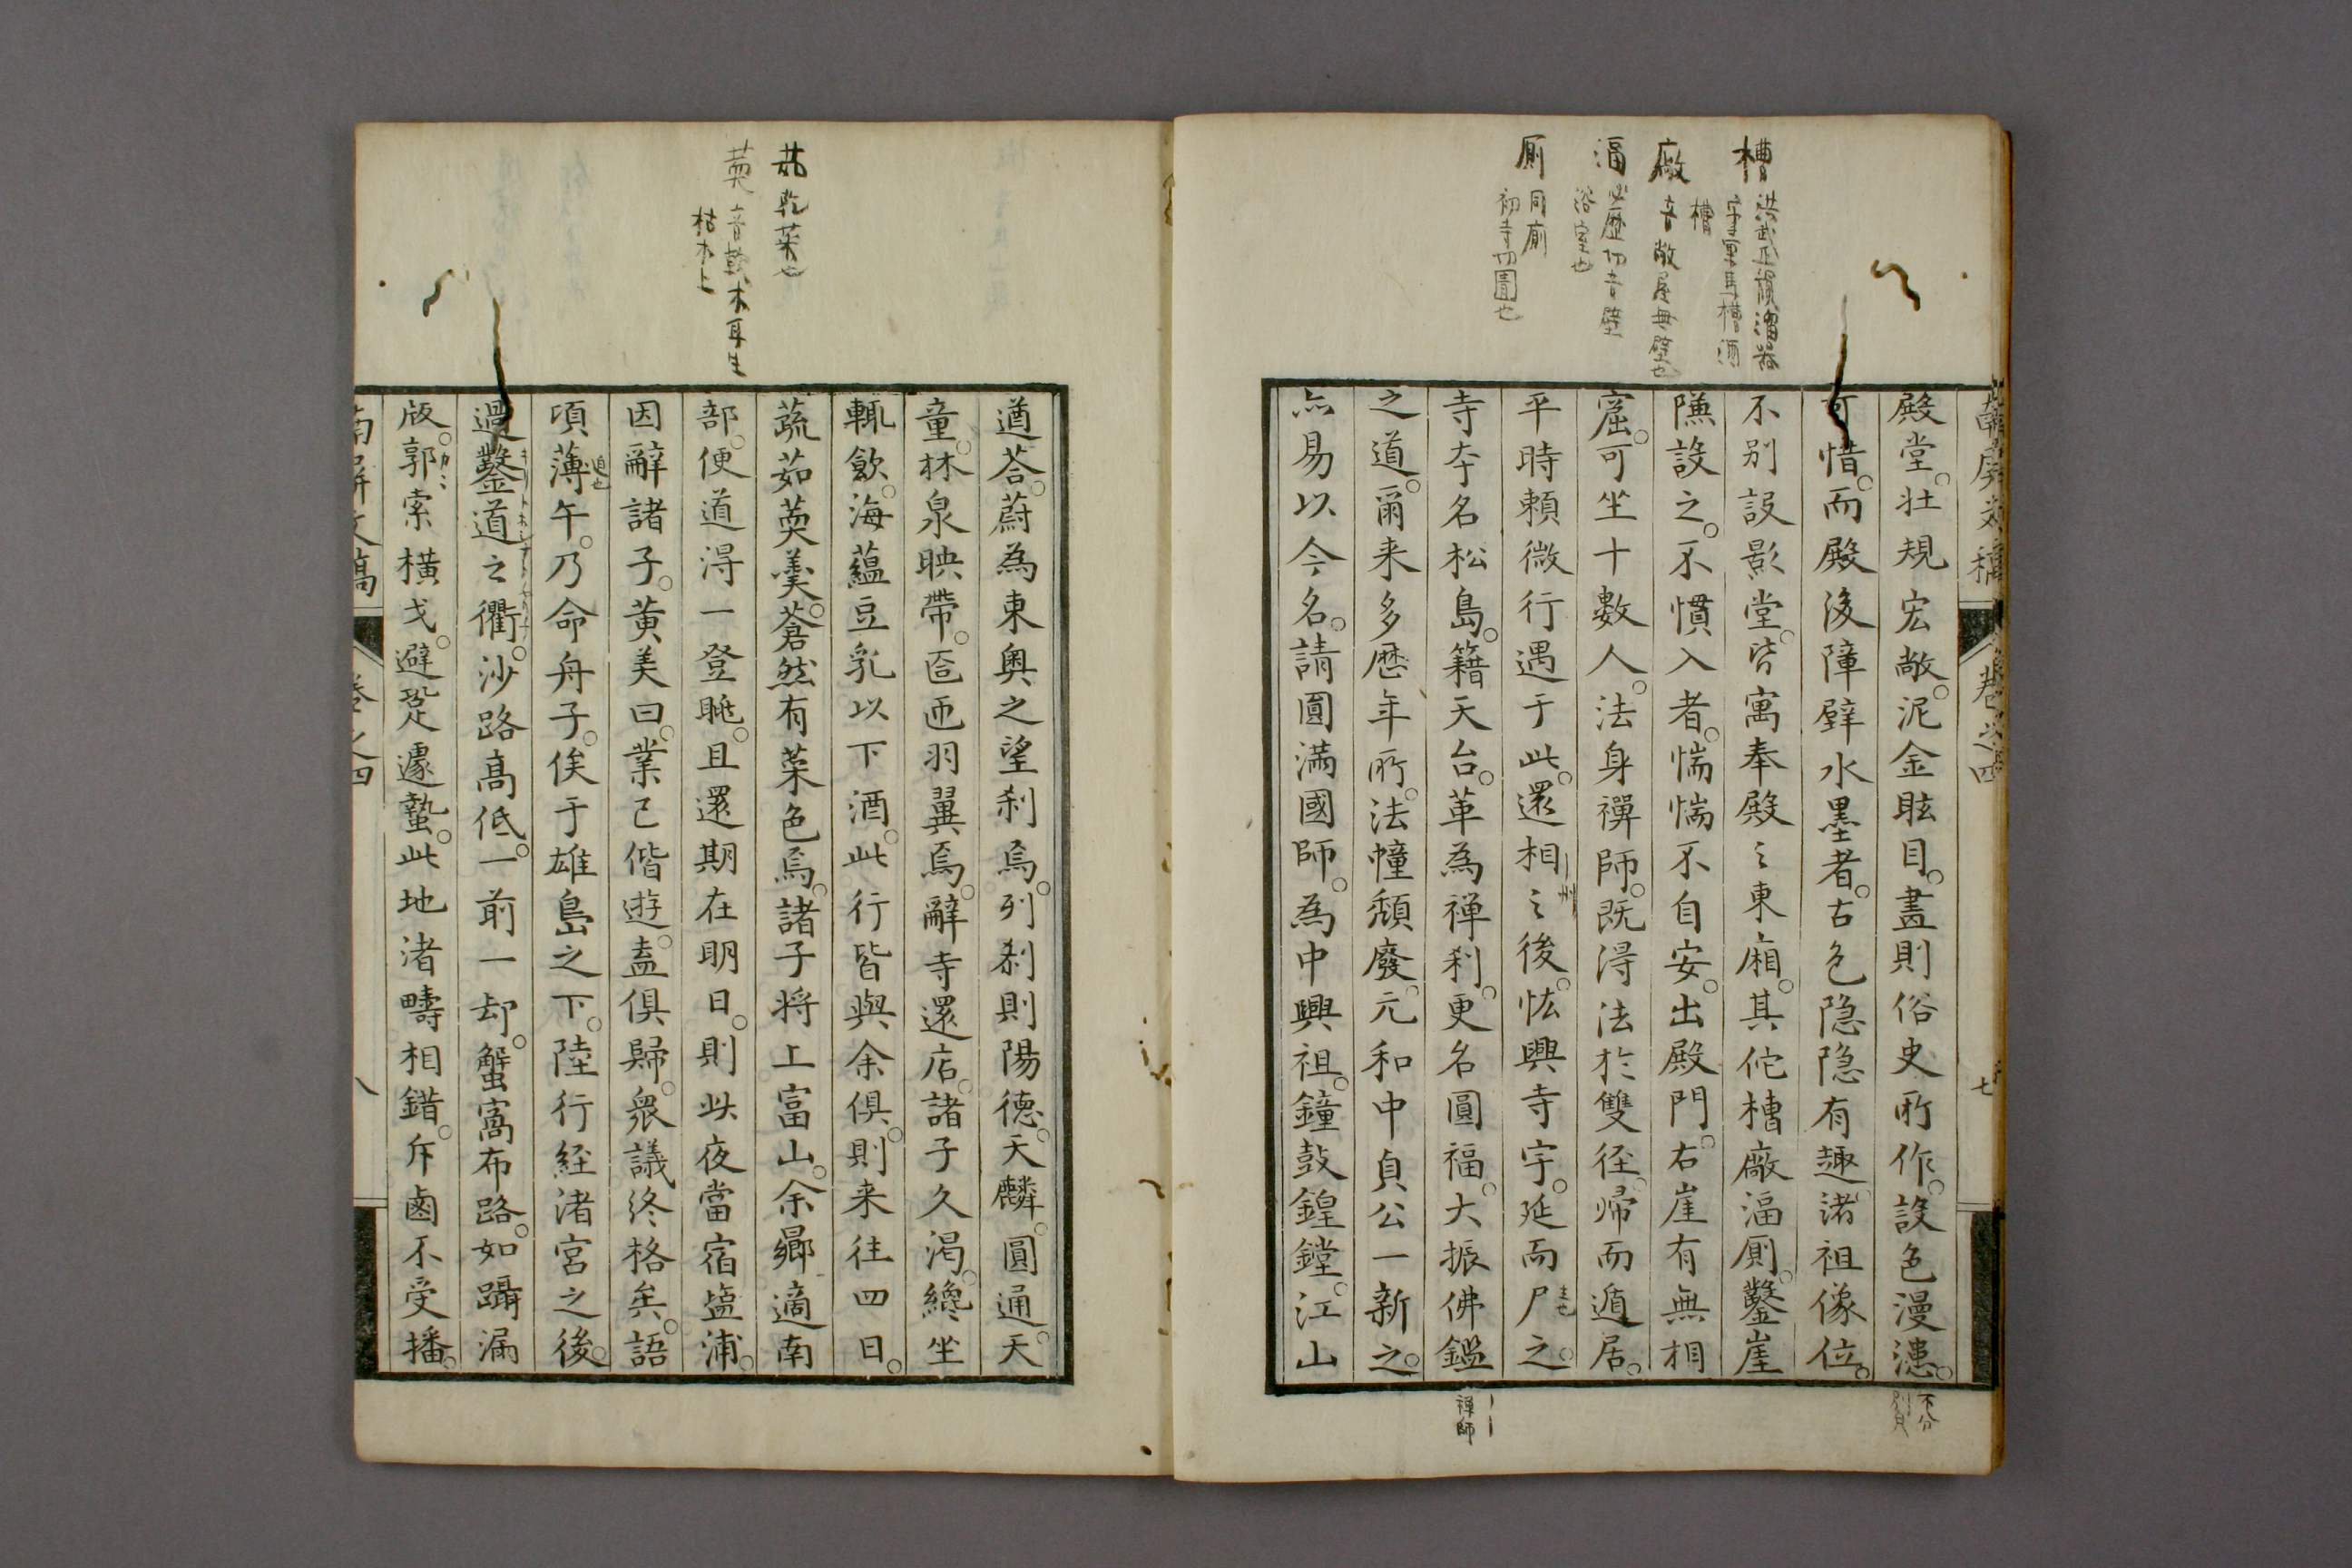 槽 洪武正韻溜器
字軍馬槽酒
槽
廠 音敞屋無壁也
湢 必歷切音壁
浴室也
厠 同廁
初寺切圊也
南屏文稿 卷之四 七
殿堂。壯規宏敞。泥金眩目。畫則俗史所作。設色漫漶。
不分
別貝
可惜。而殿後障壁水墨者。古色隐隐有趣。諸祖像位。
不别設影堂。皆寓奉殿之東廂。其佗槽廠湢厠。鑿崖
陳設之。不慣入者。惴惴不自安。出殿門。右崖有無相
窟。可坐十數人。法身禪師。既得法於雙径。帰而遁居。
平時頼微行遇于此。還相〻後。恢興寺宇。延而尸之。
州
主也
寺夲名松島。籍天台。革為禅刹。更名圓福。大振佛鑑
禅師
之道。爾来多歴年所。法幢頹廢。元和中貞公一新之。
亦易以今名。請圓滿國師。為中興祖。鐘鼓鍠鏜。江山
菰 乾菜也
萸 音軟木耳生
枯木上
遒荅。蔚為東奥之望刹焉。列刹則陽徳。天麟。圓通。天
童。林泉映帶。匼匝羽翼焉。辭寺還店。諸子久渇。纔坐
輒飲。海蘊豆乳以下酒。此行皆與余倶。則来往四日。
蔬茹萸羹。蒼然有菜色焉。諸子将上富山。余郷適南
部。便道得一登眺。且還期在明日。則此夜當宿塩浦。
因辭諸子。黄美曰。業已偕遊。盍倶歸。衆議終格矣。語
頃薄午。乃命舟子。俟于雄島之下。陸行経渚宮之後。
迫也
過鑿道之衢。沙路髙低。一前一却。蟹窩布路。如躡漏
版。郭索横戈。避跫遽蟄。此地渚疇相錯。斥鹵不受播。
南屏文稿 卷之四 八